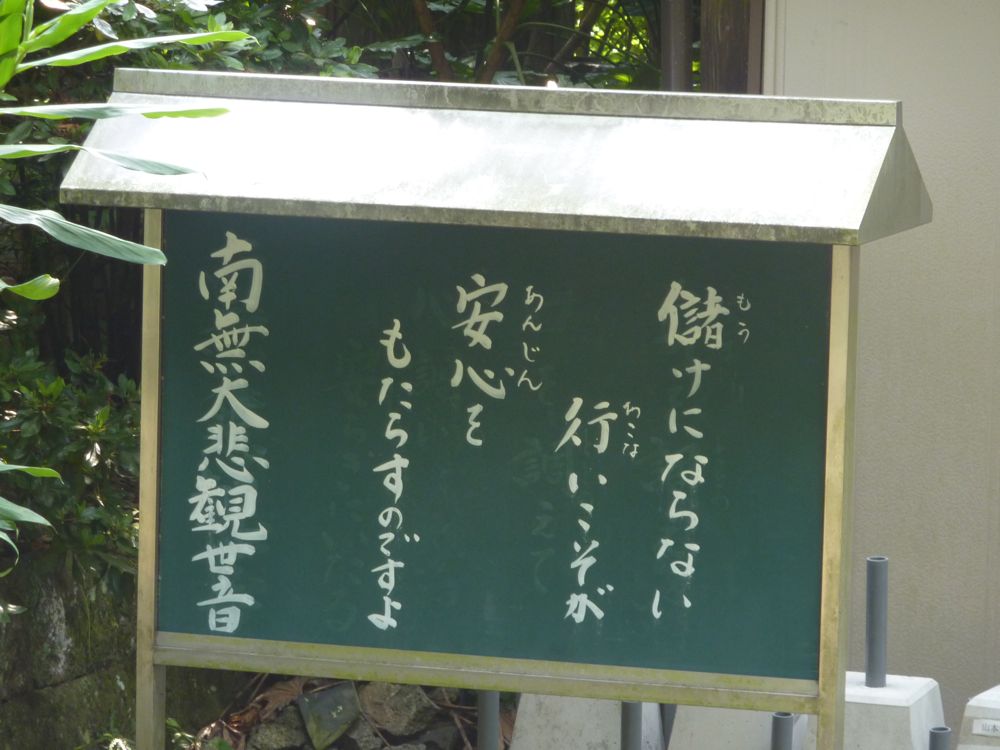 儲けにならない
もう
行いこそが
おこな
安心を
あんじん
もたらすのですよ
南無大悲観世音